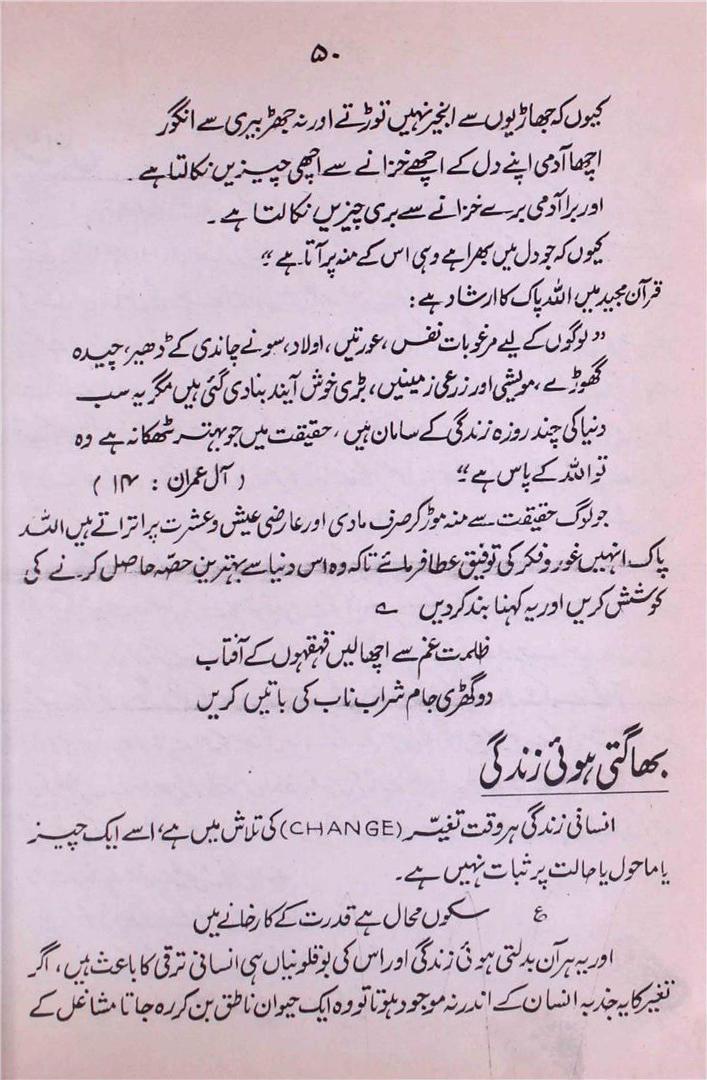 ۵۰
کیوں کہ جھاڑیوں سے انجیر نہیں توڑتے اور نہ جھڑبیری سے انگور
اچھا آدمی اپنے دل کے اچھے خزانے سے اچھی چیزیں نکالتا ہے۔
اور برا آدمی برے خزانے سے بری چیزیں نکالتا ہے۔
کیوں کہ جو دل میں بھرا ہے وہی اس کے منہ پر آتا ہے“
قرآن مجید میں اللہ پاک کا ارشاد ہے:
”لوگوں کے لیے مرغوبات نفس، عورتیں، اولاد، سونے چاندی کے ڈھیر، چیدہ
گھوڑے، مویشی اور زرعی زمینیں، بڑی خوش آیند بنا دی گئی ہیں مگر یہ سب
دنیا کی چند روزہ زندگی کے سامان ہیں، حقیقت میں جو بہتر ٹھکانہ ہے وہ
تو اللہ کے پاس ہے“ (آل عمران : ۱۴)
جو لوگ حقیقت سے منہ موڑ کر صرف مادی اور عارضی عیش و عشرت پر اتراتے ہیں اللہ
پاک انہیں غور و فکر کی توفیق عطا فرمائے تاکہ وہ اس دنیا سے بہترین حصّہ حاصل کرنے کی
کوشش کریں اور یہ کہنا بند کر دیں ؎
ظلمت غم سے اچھالیں قہقہوں کے آفتاب
دو گھڑی جام شراب ناب کی باتیں کریں
بھاگتی ہوئی زندگی
انسانی زندگی ہر وقت تغیّر (CHANGE) کی تلاش میں ہے، اسے ایک چیز
یا ماحول یا حالت پر ثبات نہیں ہے۔
ع سکوں محال ہے قدرت کے کارخانے میں
اور یہ ہر آن بدلتی ہوئی زندگی اور اس کی بوقلونیاں ہی انسانی ترقی کا باعث ہیں، اگر
تغیر کا یہ جذبہ انسان کے اندر نہ موجود ہوتا تو وہ ایک حیوان ناطق بن کر رہ جاتا مشاغل کے